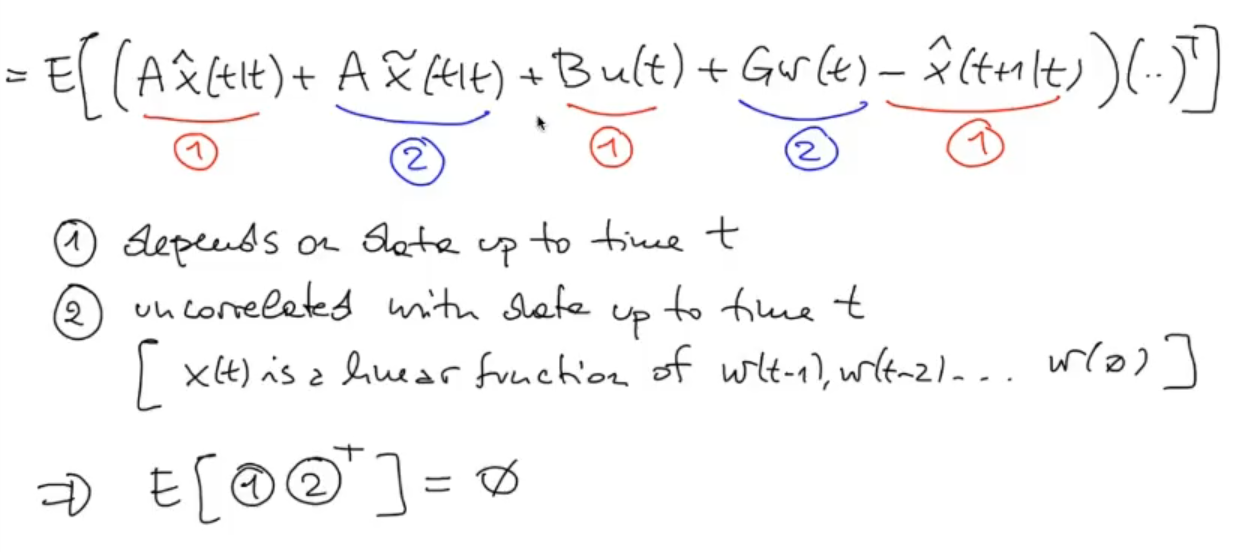 = E[(A x̂(t|t) + A x̃(t|t) + B u(t) + G w(t) − x̂(t+1|t))(..)ᵀ]
① ② ① ② ①
① depends on data up to time t
② uncorrelated with data up to time t
[ x(t) is a linear function of w(t-1), w(t-2) - ... w(0) ]
⇒ E[①②ᵀ] = 0